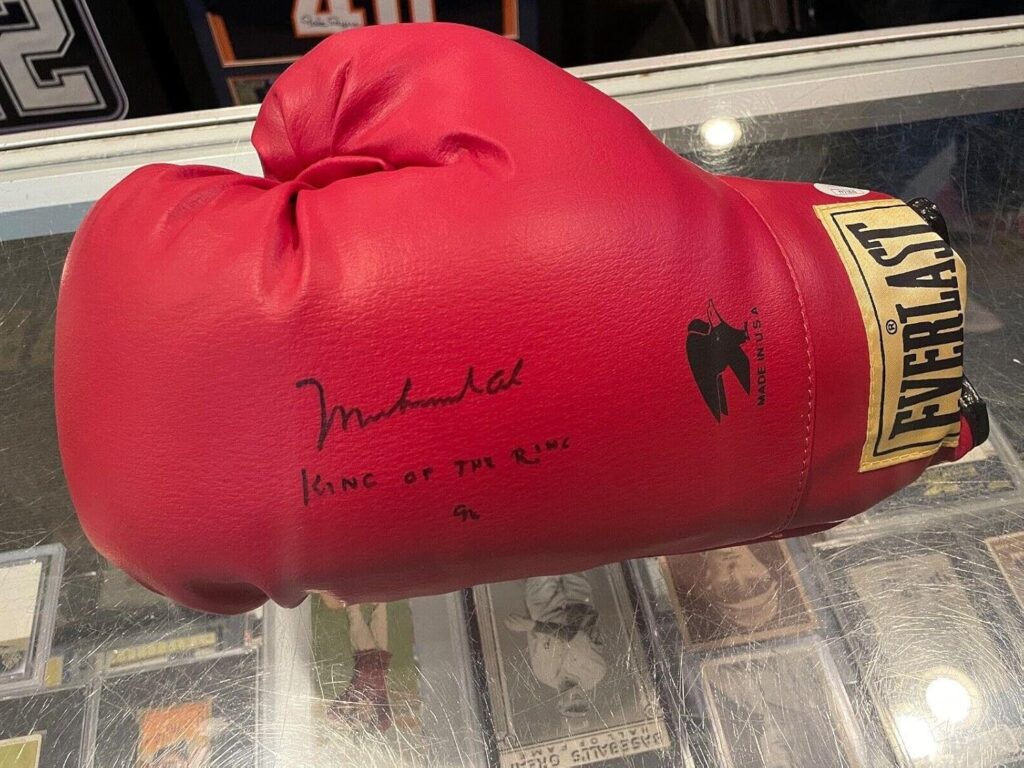 40
2
Muhammad Ali
KING OF THE RING
MADE IN U.S.A
EVERLAST
®
BASEBALL'S GREAT
HALL OF FAME